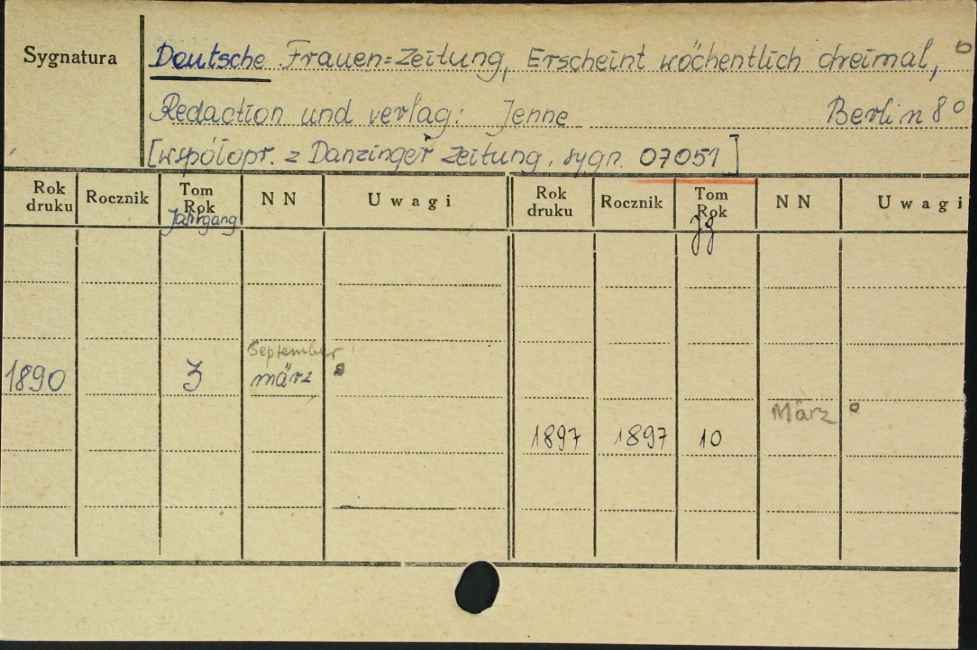 Sygnatura
Deutsche Frauen=Zeitung, Erscheint wöchentlich dreimal,
Redaction und verlag: Jenne Berlin 8°
[współopr. z Danzinger Zeitung, sygn. 07051]
Rok druku Rocznik Tom Rok Jahrgang NN Uwagi Rok druku Rocznik Tom Rok Jg NN Uwagi
September
1890 3 märz
März
1897 1897 10